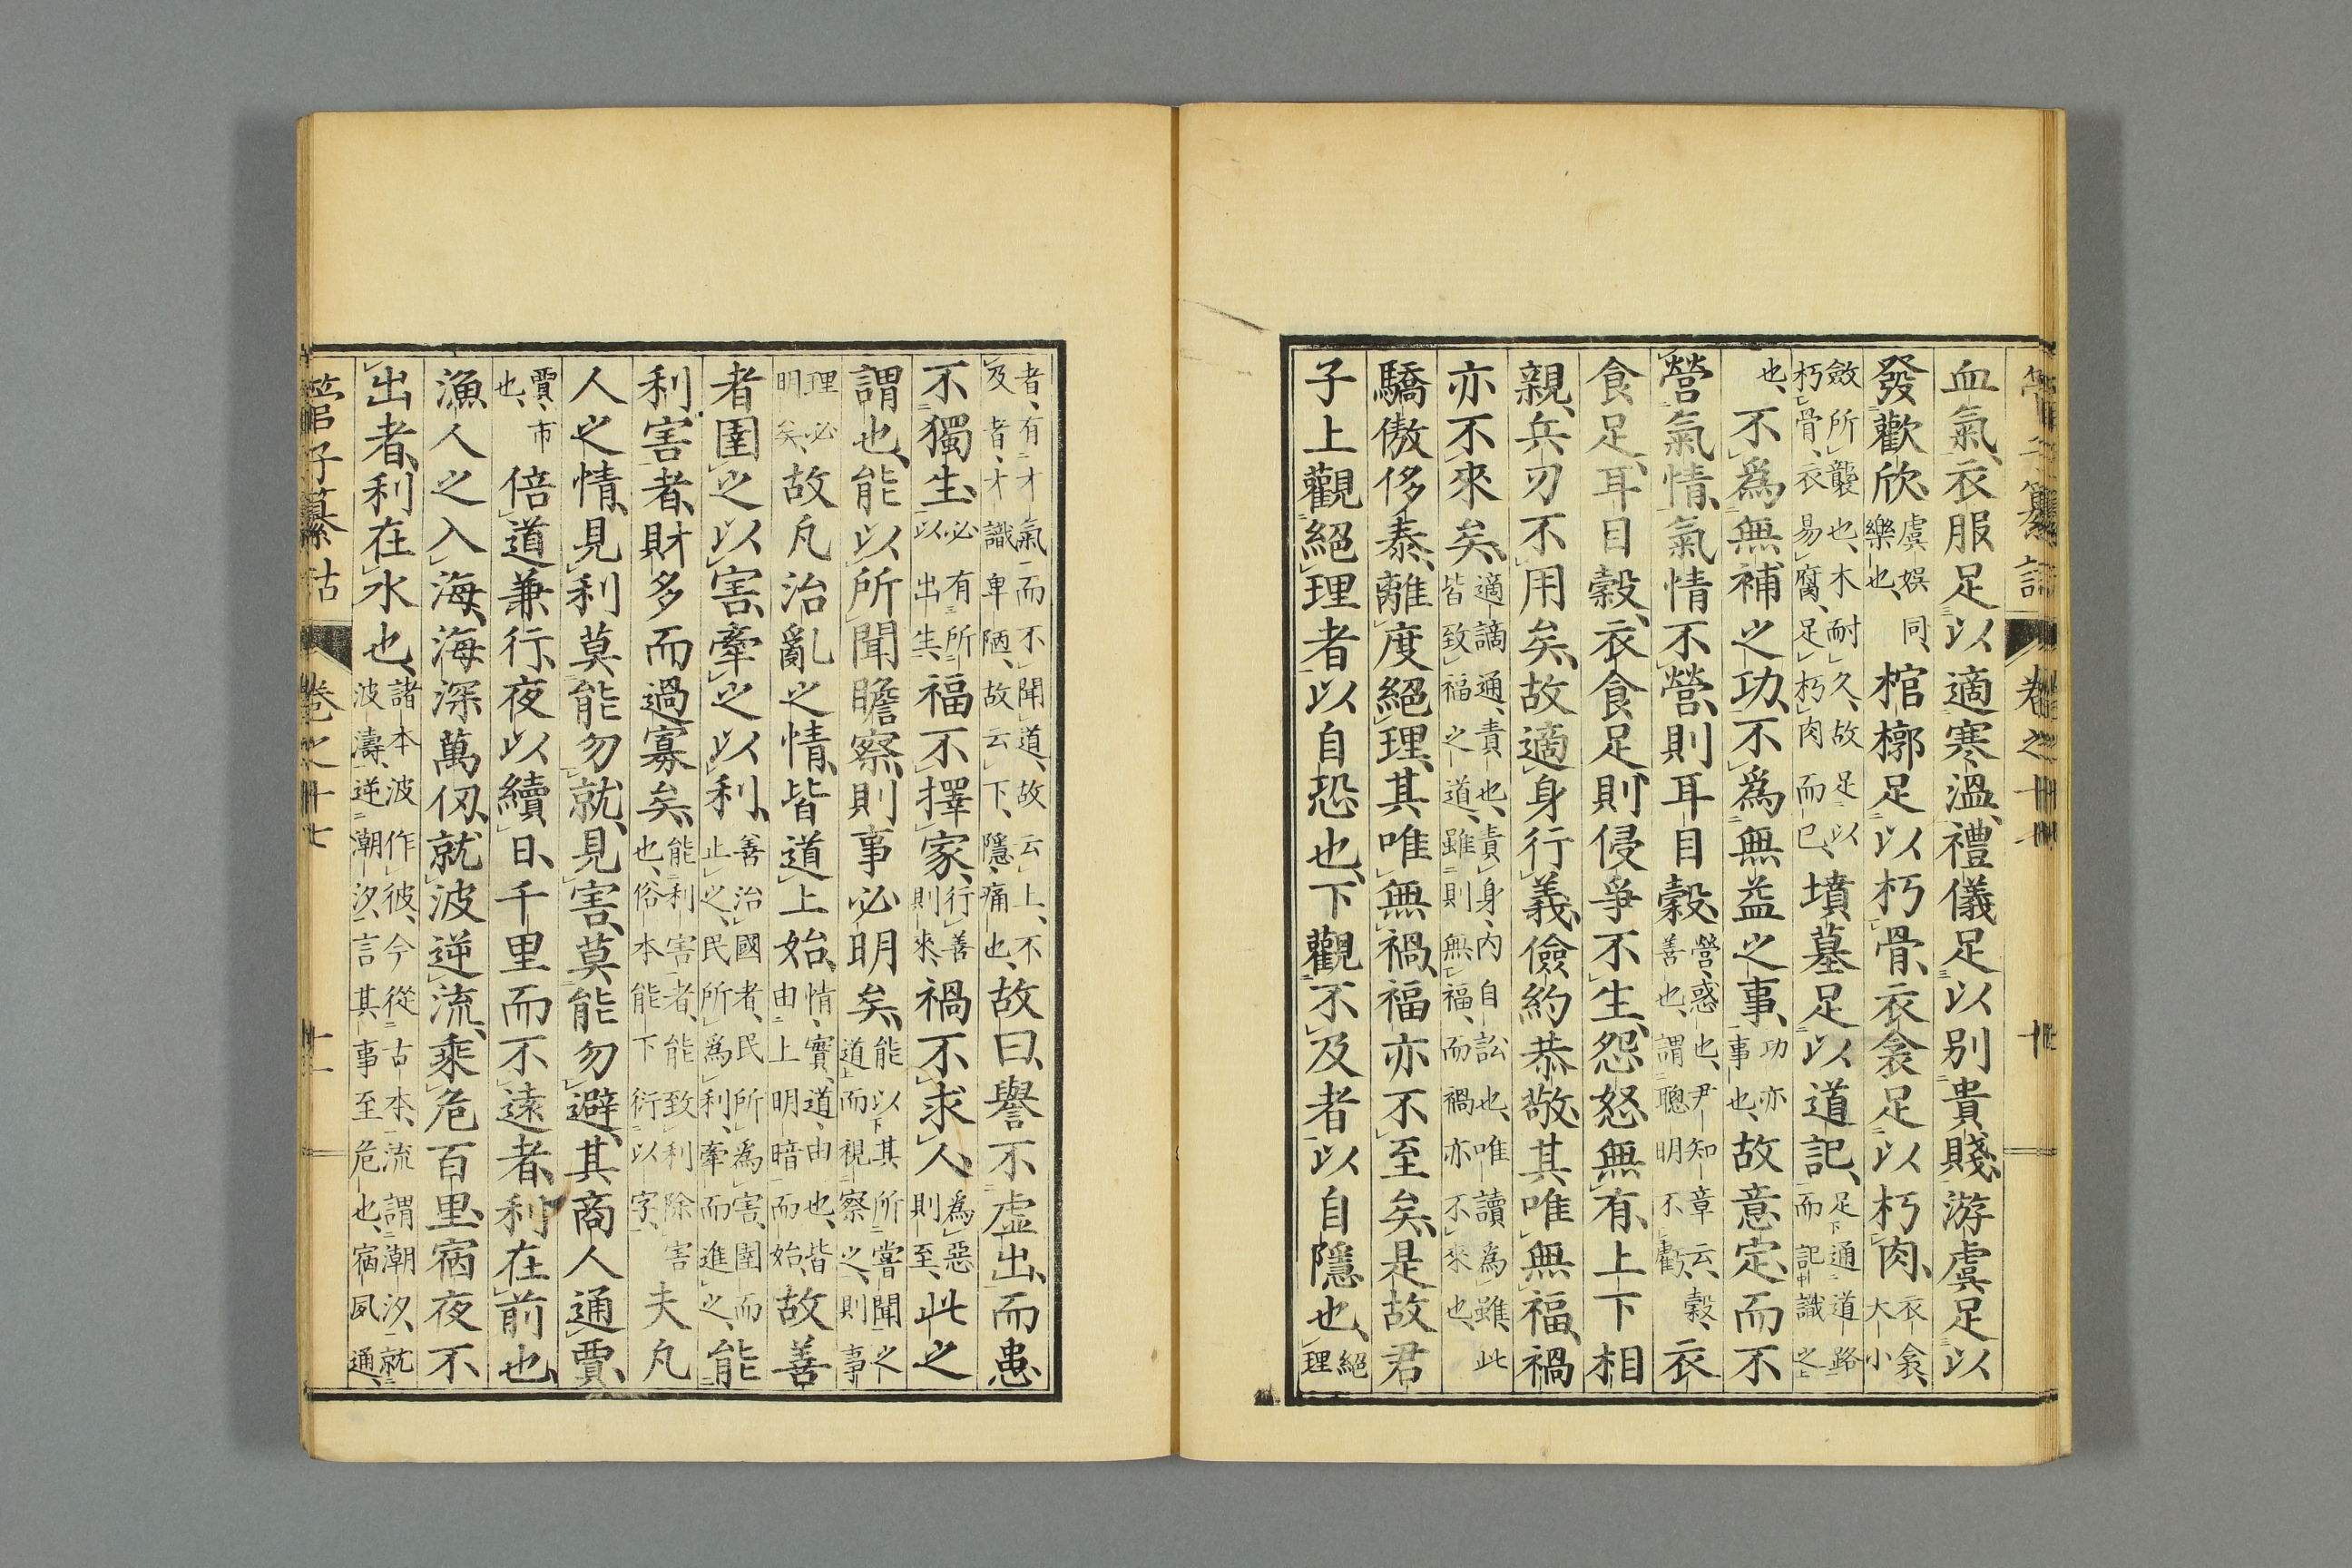 血氣、衣服足以適寒溫、禮儀足以別貴賤、游虞足以
發歡欣、虞娛同、樂也、棺槨足以朽骨、衣衾足以朽肉、衣衾、大小
斂所襲也、木耐久、故足以朽骨、衣易腐、足朽肉而已、墳墓足以道記、足通道路而記識之
也、不爲無補之功、不爲無益之事、功亦事也、故意定、而不
營氣情、氣情不營、則耳目穀、營、惑也、尹知章云、穀、善也、謂聰明不虧、衣
食足、耳目穀、衣食足、則侵爭不生、怨怒無有、上下相
親、兵刃不用矣、故適身行義、儉約恭敬、其唯無福、禍
亦不來矣、適讁通、責也、責身、内自訟也、唯讀爲雖、此皆致福之道、雖則無福、而禍亦不來也、
驕傲侈泰、離度絕理、其唯無禍、福亦不至矣、是故君
子上觀絕理者以自恐也、下觀不及者以自隱也、絕理
者、有才氣而不聞道、故云上、不及者、才識卑陋、故云下、隱、痛也、故曰、譽不虛出、而患
不獨生、必有所以出生、福不擇家、行善則來、禍不求人、爲惡則至、此之
謂也、能以所聞瞻察、則事必明矣、能以其所嘗聞之道而視察之、則事
理必明矣、故凡治亂之情、皆道上始、情、實、道、由也、皆由上明暗而始、故善
者圉之以害、牽之以利、善治國者、民所爲害、圉而止之、民所爲利、牽而進之、能
利害者、財多而過寡矣、能利害者、能致利除害也、俗本能下衍以字、夫凡
人之情、見利莫能勿就、見害莫能勿避、其商人通賈、
賈、市也、倍道兼行、夜以續日、千里而不遠者、利在前也、
漁人之入海、海深萬仞、就波逆流、乘危百里、宿夜不
出者、利在水也、諸本波作彼、今從古本、流謂潮汐、就波濤、逆潮汐、言其事至危也、宿夙通、
管子纂詁 卷之十七 十一